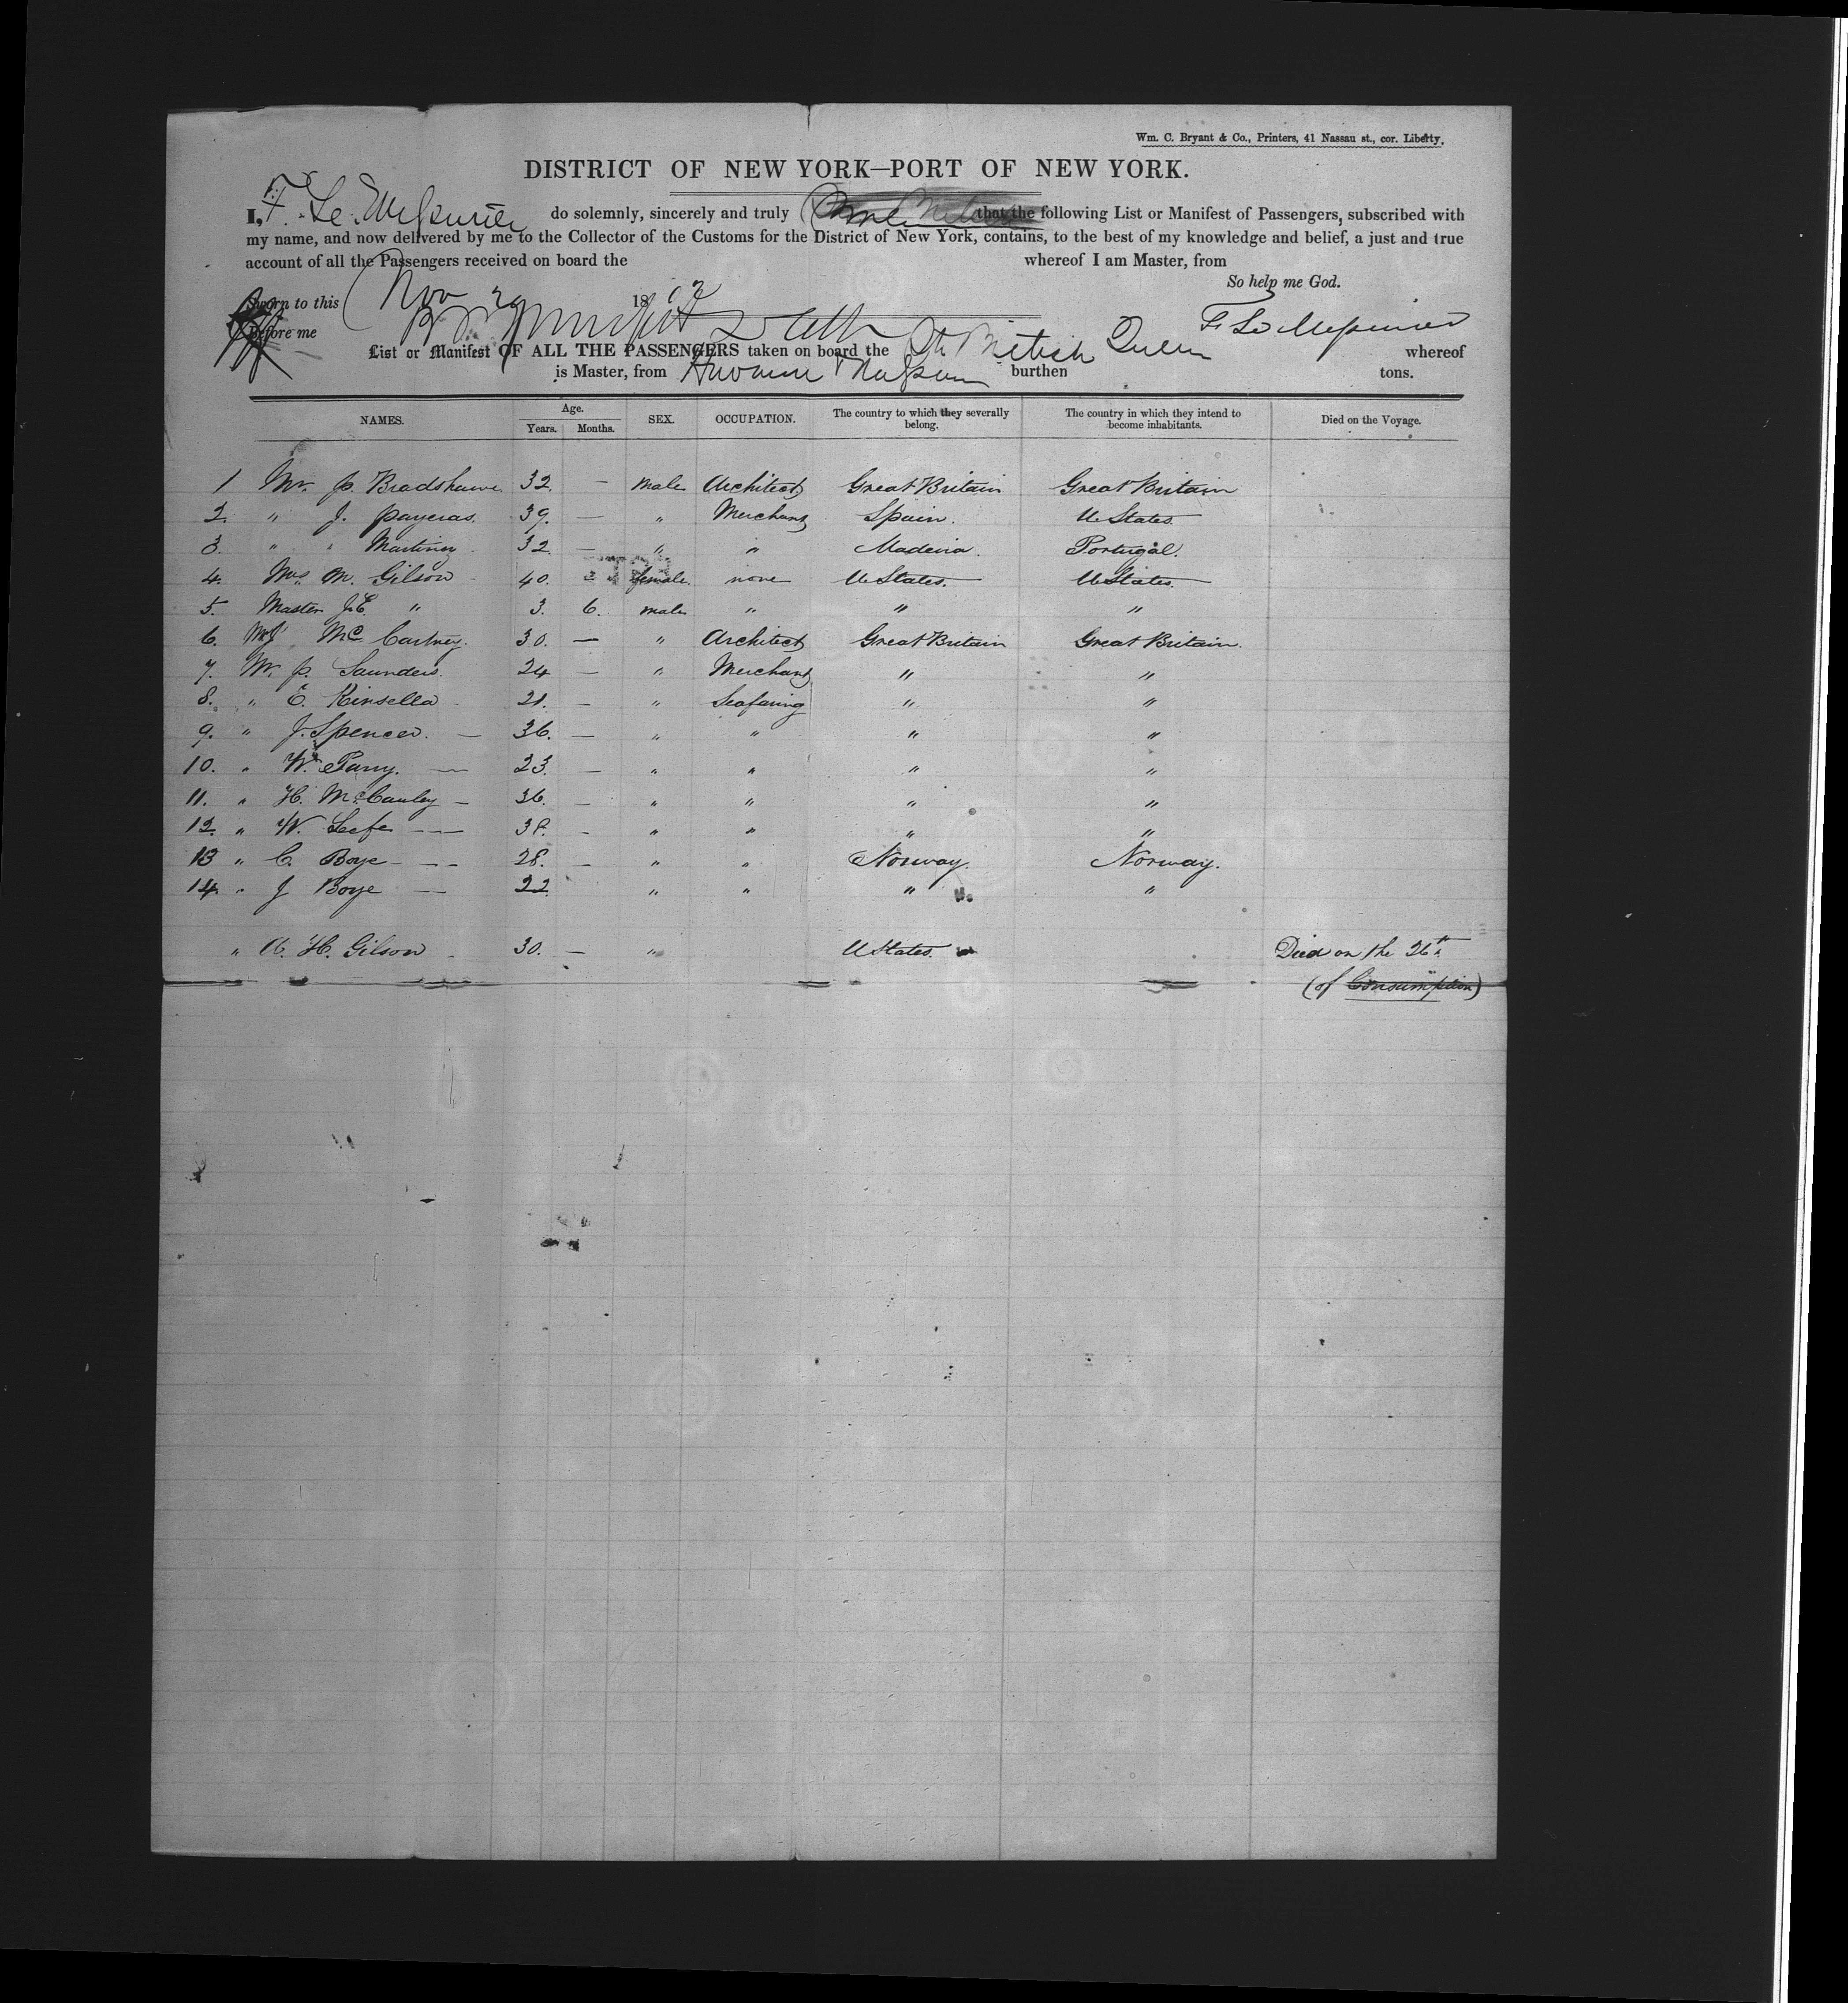 Wm. C. Bryant & Co., Printers, 41 Nassau st., cor. Liberty.
DISTRICT OF NEW YORK—PORT OF NEW YORK.
I, F. Le Messurier do solemnly, sincerely and truly that the following List or Manifest of Passengers, subscribed with
my name, and now delivered by me to the Collector of the Customs for the District of New York, contains, to the best of my knowledge and belief, a just and true
account of all the Passengers received on board the whereof I am Master, from
So help me God.
Sworn to this Nov 29 1862
Before me F. Le Messurier
List or Manifest OF ALL THE PASSENGERS taken on board the British Queen whereof
is Master, from Havana & Nassau burthen tons.
NAMES. Age. Years. Months. SEX. OCCUPATION. The country to which they severally belong. The country in which they intend to become inhabitants. Died on the Voyage.
1 Mr. J. Bradshawe 32. — male Architect Great Britain Great Britain
2. " J. Payeras. 39. — " Merchant Spain. U States.
3. " " Martinez 32 — " " Maderia. Portugal.
4. Mrs. M. Gilson 40. female. none U States. U States.
5. Master J.E. " 3. 6. male " " "
6. Mr J Mc. Cartney. 30. — " Architect Great Britain Great Britain.
7. Mr. J. Saunders. 24 — " Merchant " "
8. " E. Kinsella 21. — " Seafaring " "
9. " J. Spencer. — 36. — " " " "
10. " Wm. Parry. — 23. — " " " "
11. " H. McCauley — 36. — " " " "
12. " W. Leefe — 38. - " " " "
13 " C. Boye — 28. — " " Norway. Norway.
14 " J Boye — 22. " " " "
" A. H. Gilson 30. — " U States. Died on the 26th.
(of Consumption)